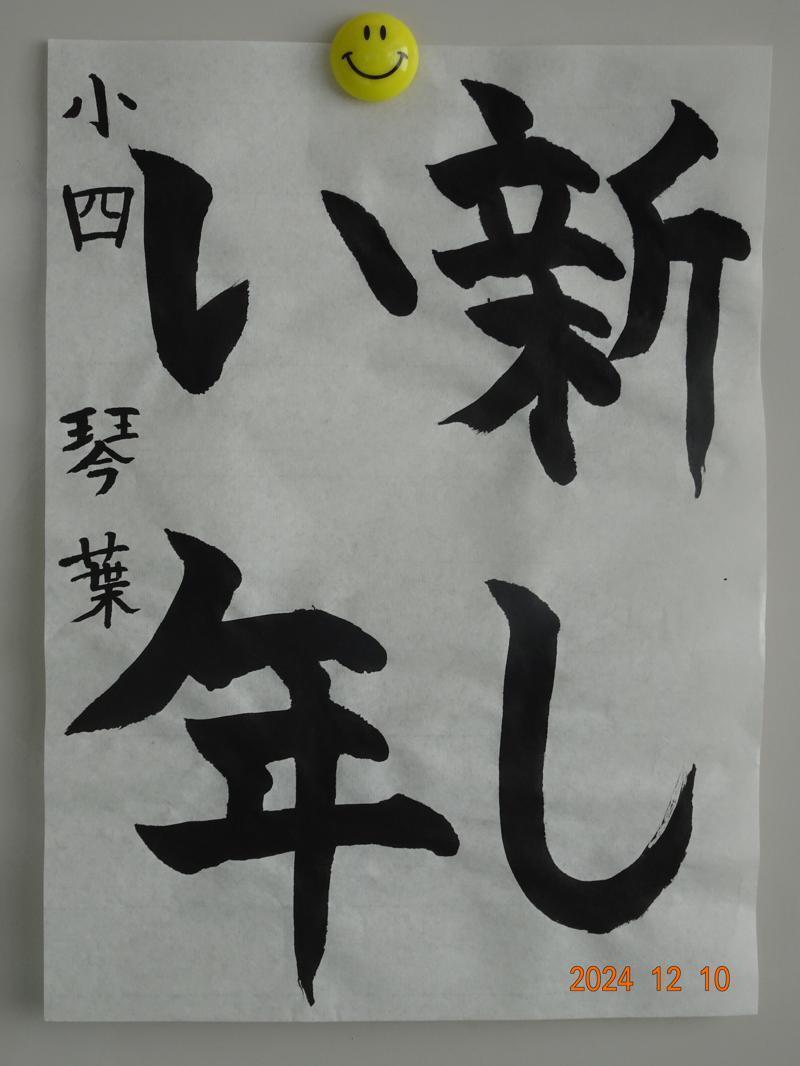 新し
い年
小四 琴葉
2024 12 10